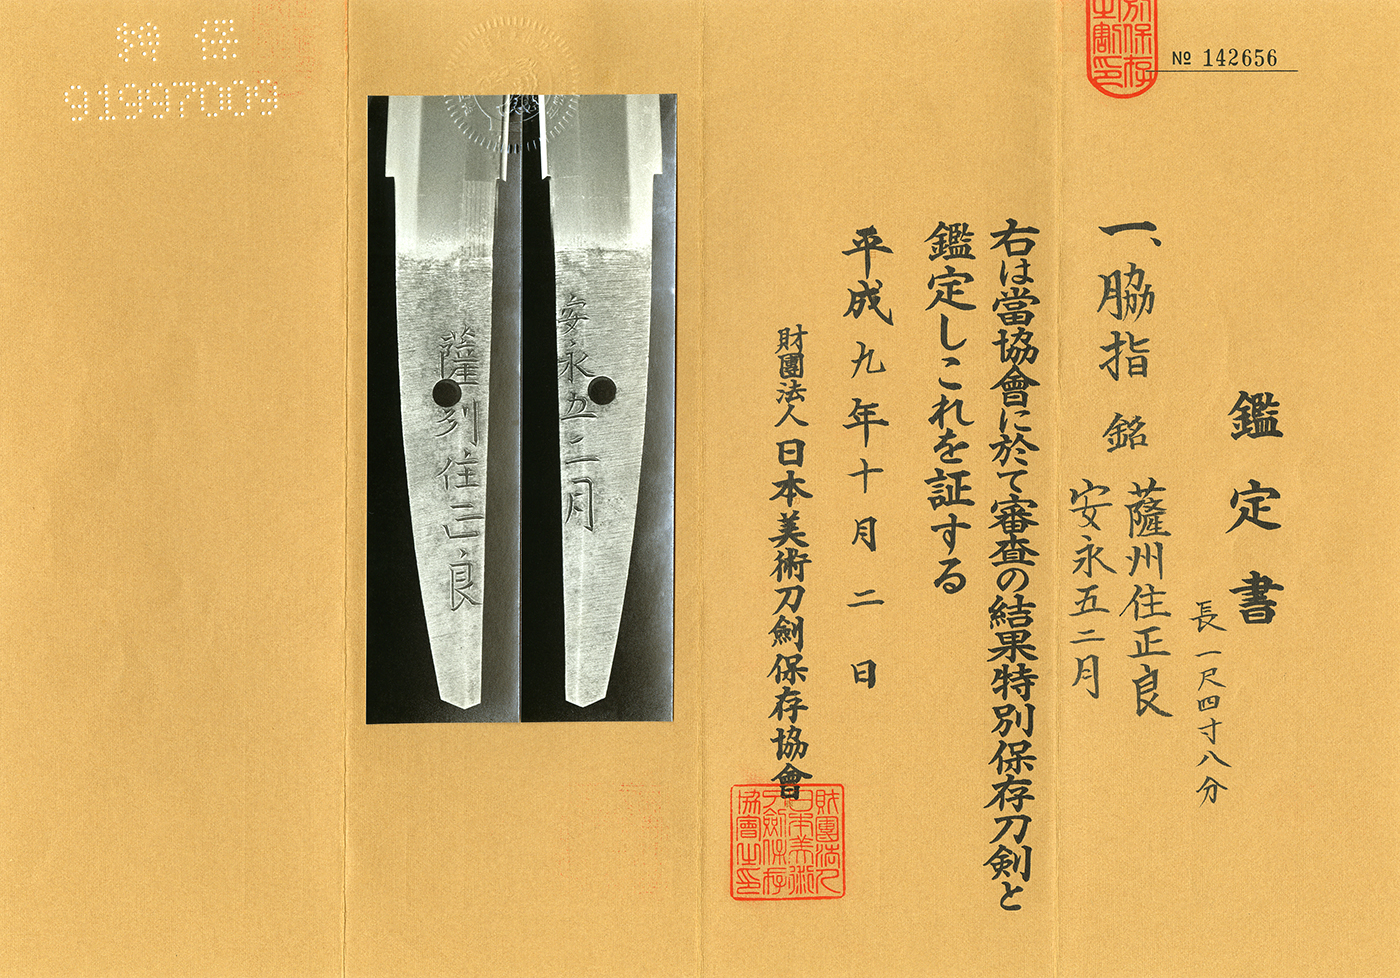 鑑定書
長一尺四寸八分
一、脇指 銘 薩州住正良
安永五二月
右は當協會に於て審査の結果特別保存刀剣と
鑑定しこれを証する
平成九年十月二日
財團法人日本美術刀劍保存協會
財團法人
日本美術
刀劍保存
協會之印
№ 142656
特保
91997009
安永五二月
薩州住正良